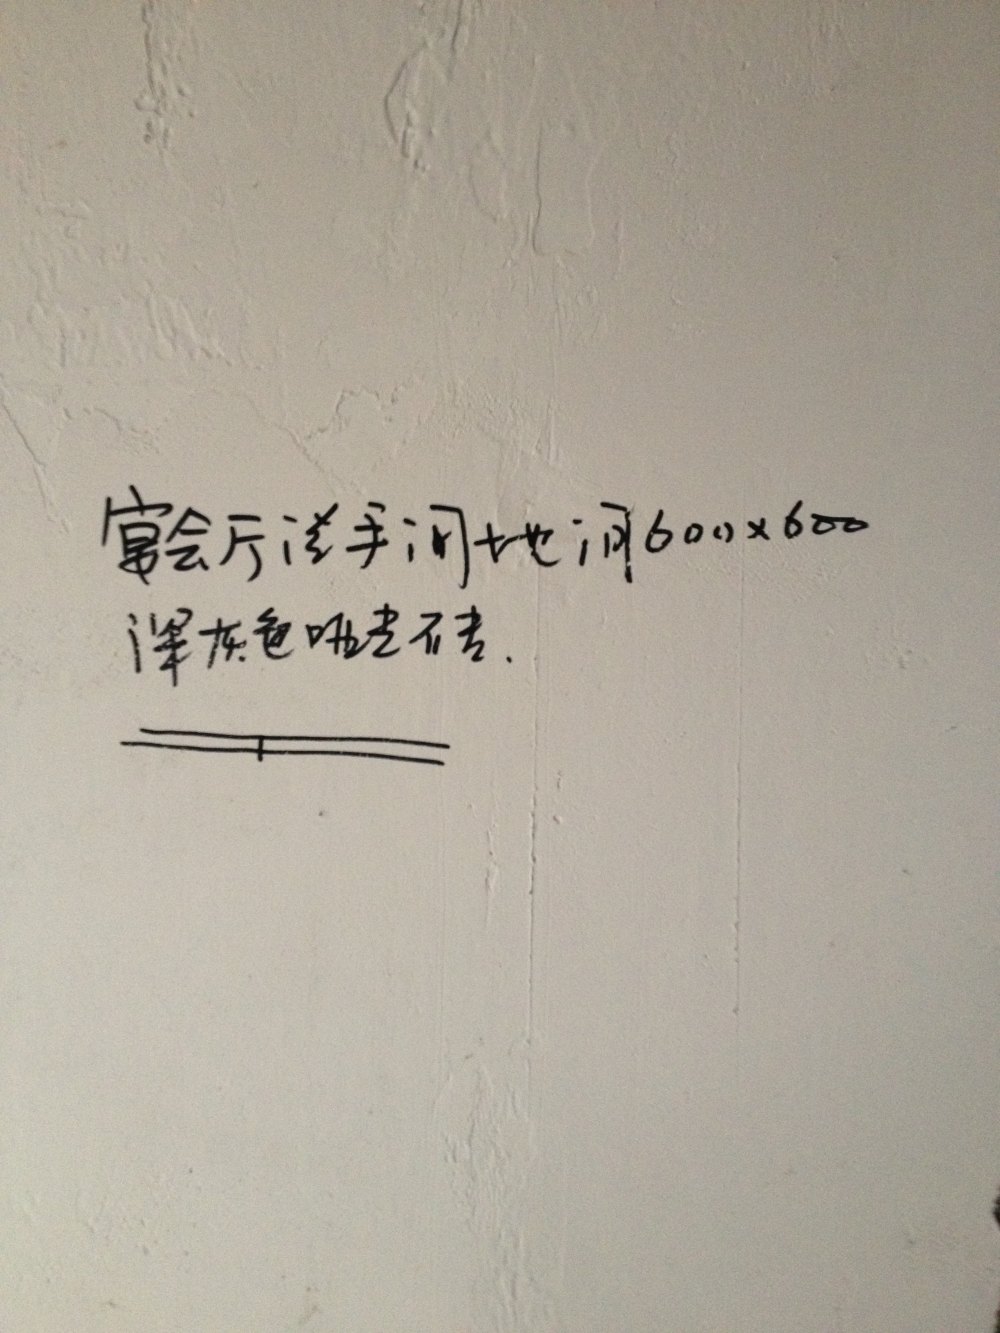 宴会厅洗手间地间600×600
深灰色哑光石砖.